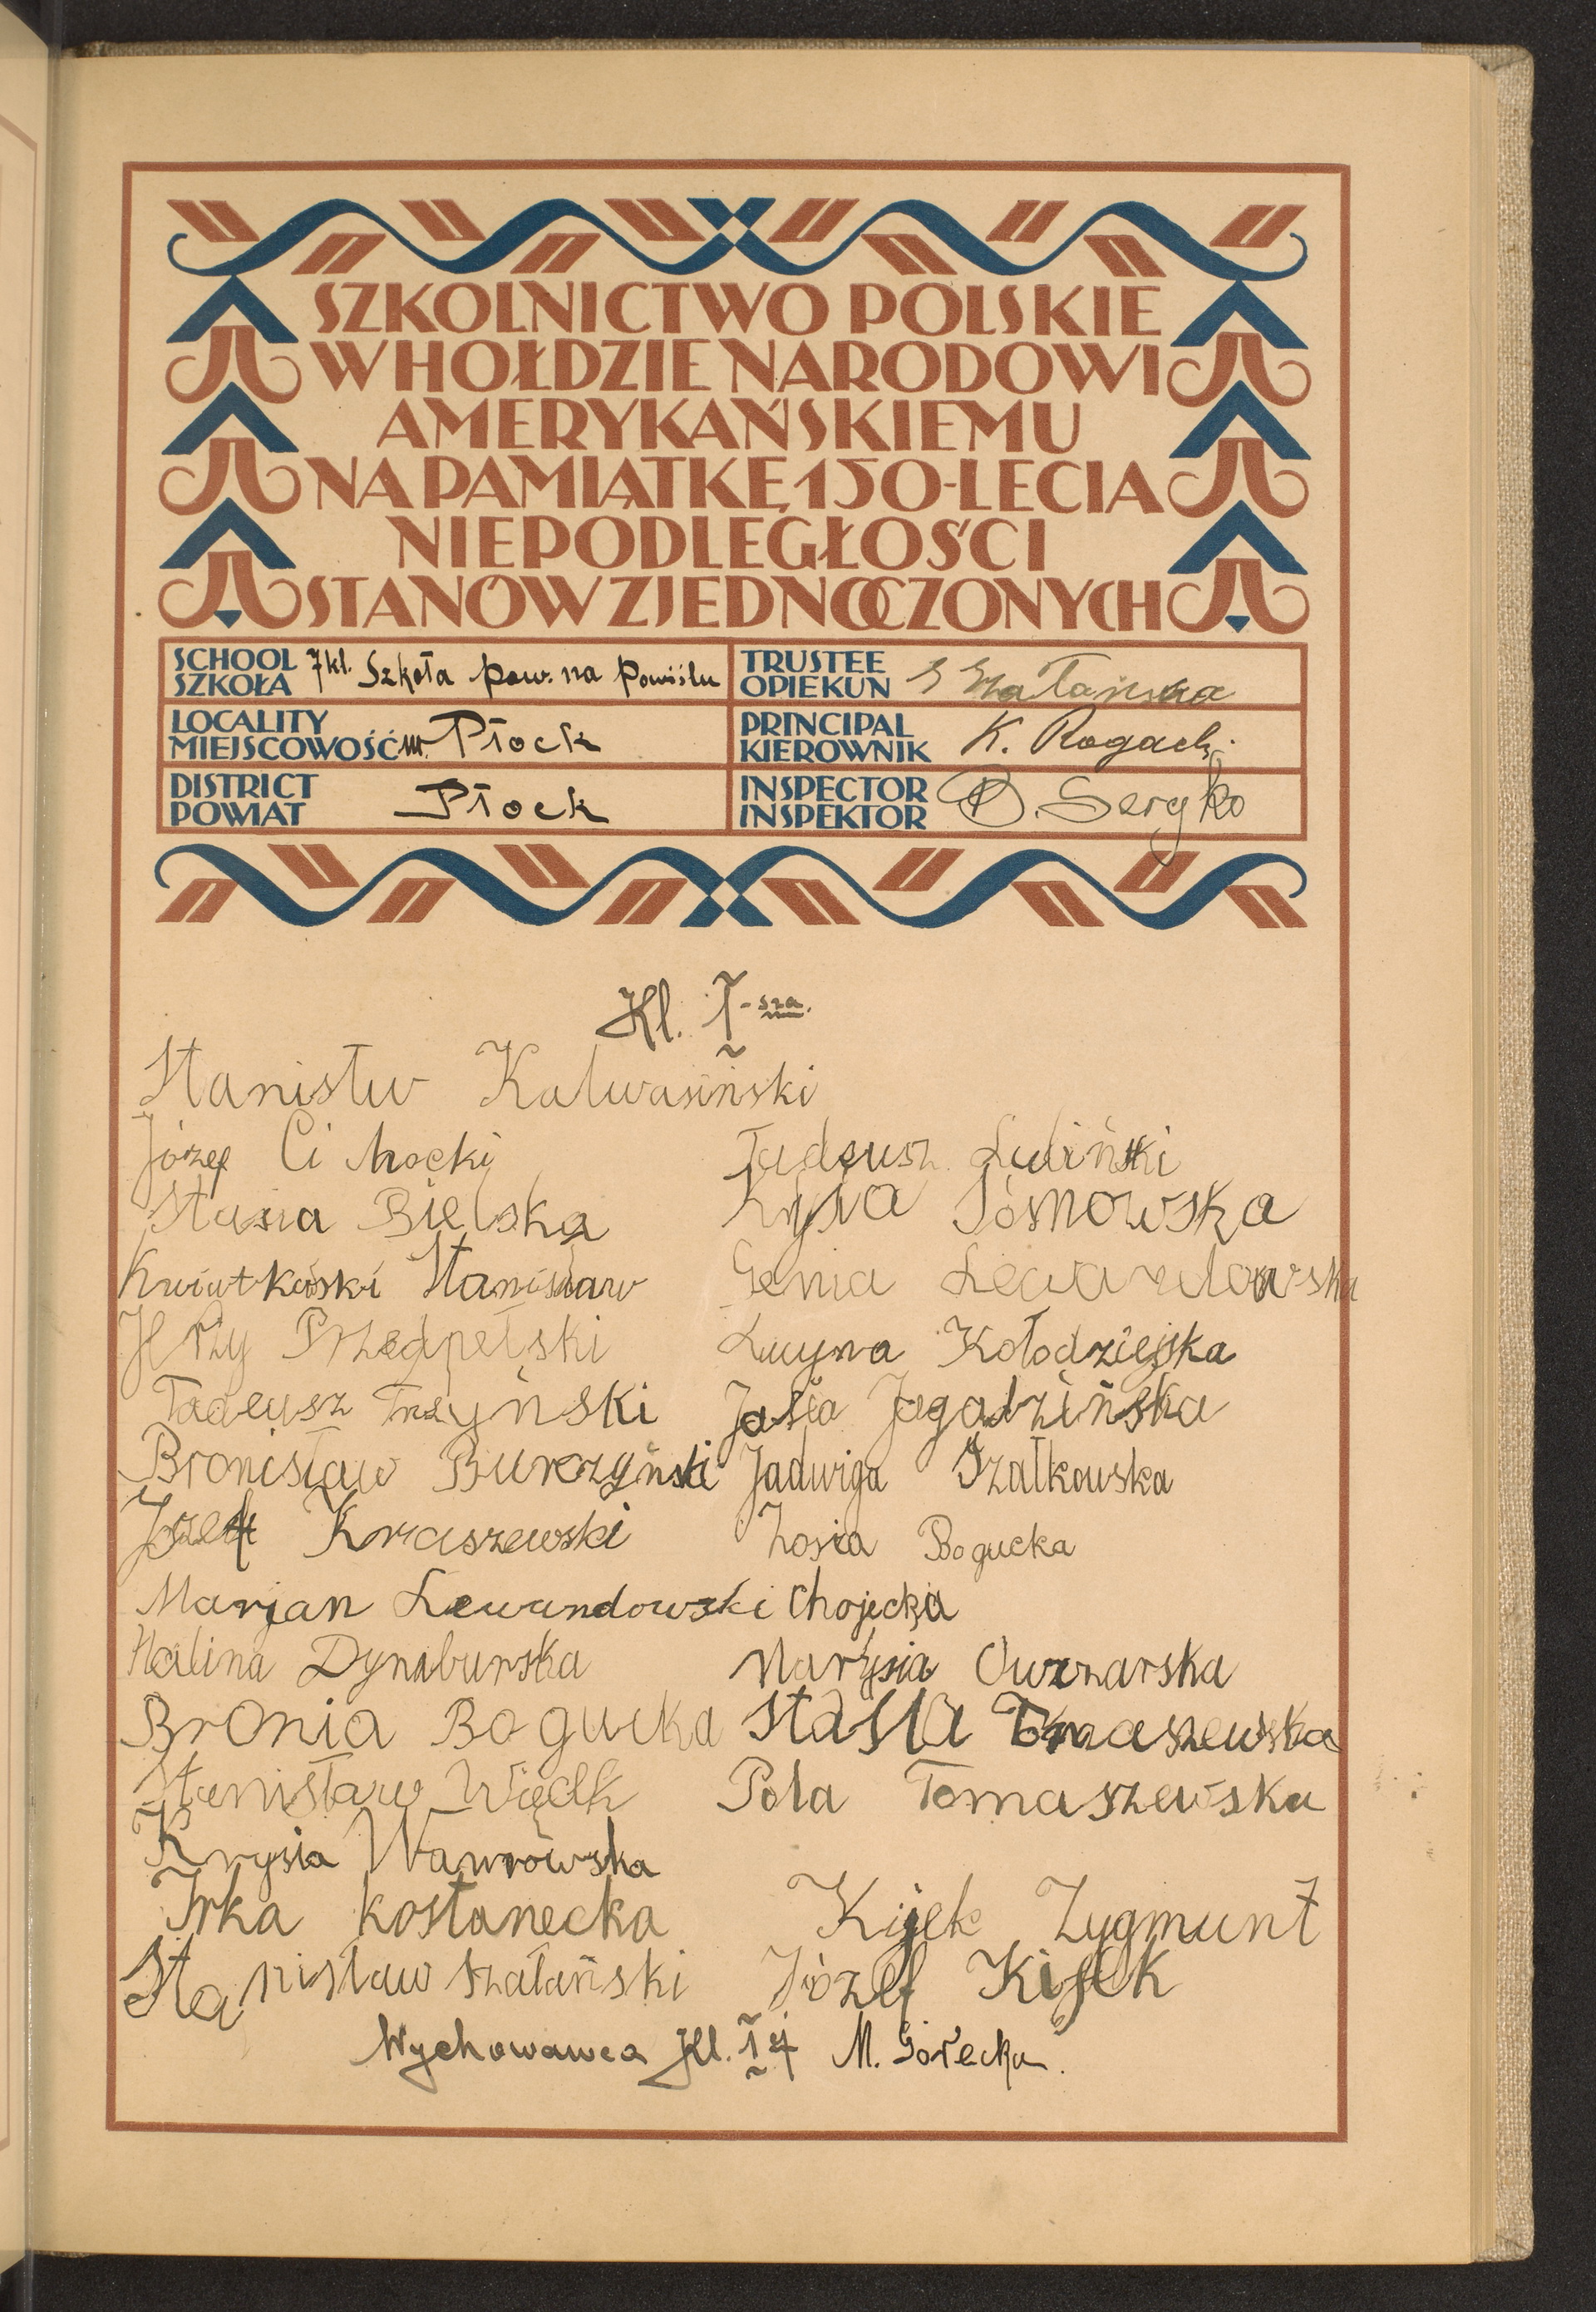 SZKOLNICTWO POLSKIE
W HOŁDZIE NARODOWI
AMERYKAŃSKIEMU
NA PAMIĄTKĘ 150-LECIA
NIEPODLEGŁOŚCI
STANÓW ZJEDNOCZONYCH
SCHOOL
SZKOŁA 7kl. Szkoła pow. na Powiślu
TRUSTEE
OPIEKUN
LOCALITY
MIEJSCOWOŚĆ m. Płock
PRINCIPAL
KIEROWNIK K. Rogacki
DISTRICT
POWIAT Płock
INSPECTOR
INSPEKTOR Seryko
Kl. I-sza.
Stanisłw Kalwasiński
Józef Cichocki
Stasia Bielska
Kwiatkowski Stanisław
Jerzy Przedpełski
Tadeusz Trzyński
Bronisław Burczyński
Józef Kraszewski
Marjan Lewandowski
Halina Dynaburska
Bronia Bogucka
Stanisław Wącik
Krysia Wawrowska
Irka Kostanecka
Stanisław Szatański
Tadeusz Lubiński
Krysia Sosnowska
Genia Lewandowska
Lucyna Kołodziejska
Jasia Jagodzińska
Jadwiga Szałkowska
Zosia Bogucka
Chojecka
Marysia Owczarska
Stasia Tomaszewska
Pola Tomaszewska
Kijek Zygmunt
Józef Kijek
Wychowawca Kl. I ej M. Górecka.